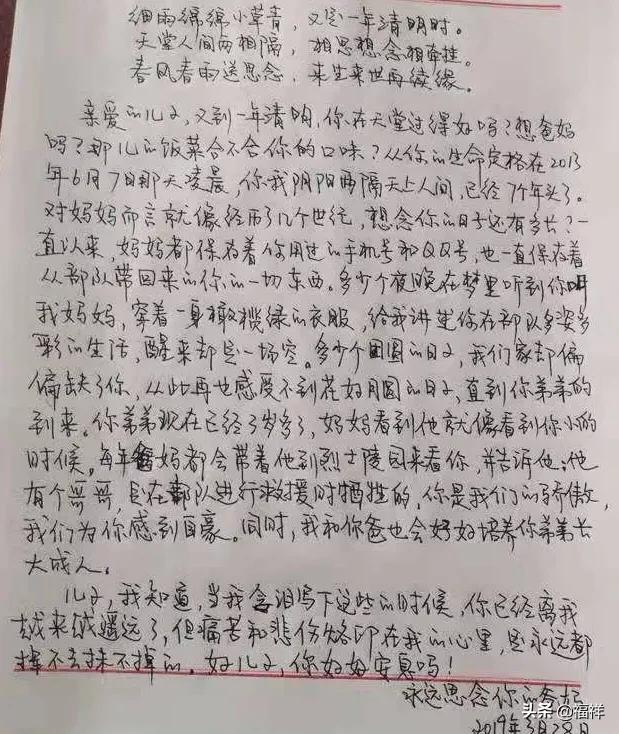 细雨绵绵小草青，又是一年清明时。
天堂人间两相隔，相思想念相牵挂。
春风春雨送思念，来生来世再续缘。
亲爱的儿子，又到一年清明，你在天堂过得好吗？想爸妈
吗？那儿的饭菜合不合你的口味？从你的生命定格在2013
年6月7日那天凌晨，你我阴阳两隔天上人间，已经7个年头了。
对妈妈而言就像经历了几个世纪，想念你的日子还有多长？一
直以来，妈妈都保存着你用过的手机号和QQ号，也一直保存着
从部队带回来的你的一切东西。多少个夜晚在梦里听到你叫
我妈妈，穿着一身橄榄绿的衣服，给我讲述你在部队多姿多
彩的生活，醒来却是一场空。多少个团圆的日子，我们家却偏
偏缺了你，从此再也感受不到花好月圆的日子，直到你弟弟的
到来。你弟弟现在已经3岁多了，妈妈看到他就像看到你小的
时候。每年妈妈都会带着他到烈士陵园来看你，并告诉他：他
有个哥哥，是在部队进行救援时牺牲的，你是我们的骄傲，
我们为你感到自豪。同时，我和你爸也会好好培养你弟弟长
大成人。
儿子，我知道，当我含泪写下这些的时候，你已经离我
越来越遥远了，但痛苦和悲伤烙印在我的心里，是永远都
挥不去抹不掉的。好儿子，你好好安息吗！
永远思念你的爸妈
2019年3月28日
头条 @福祥